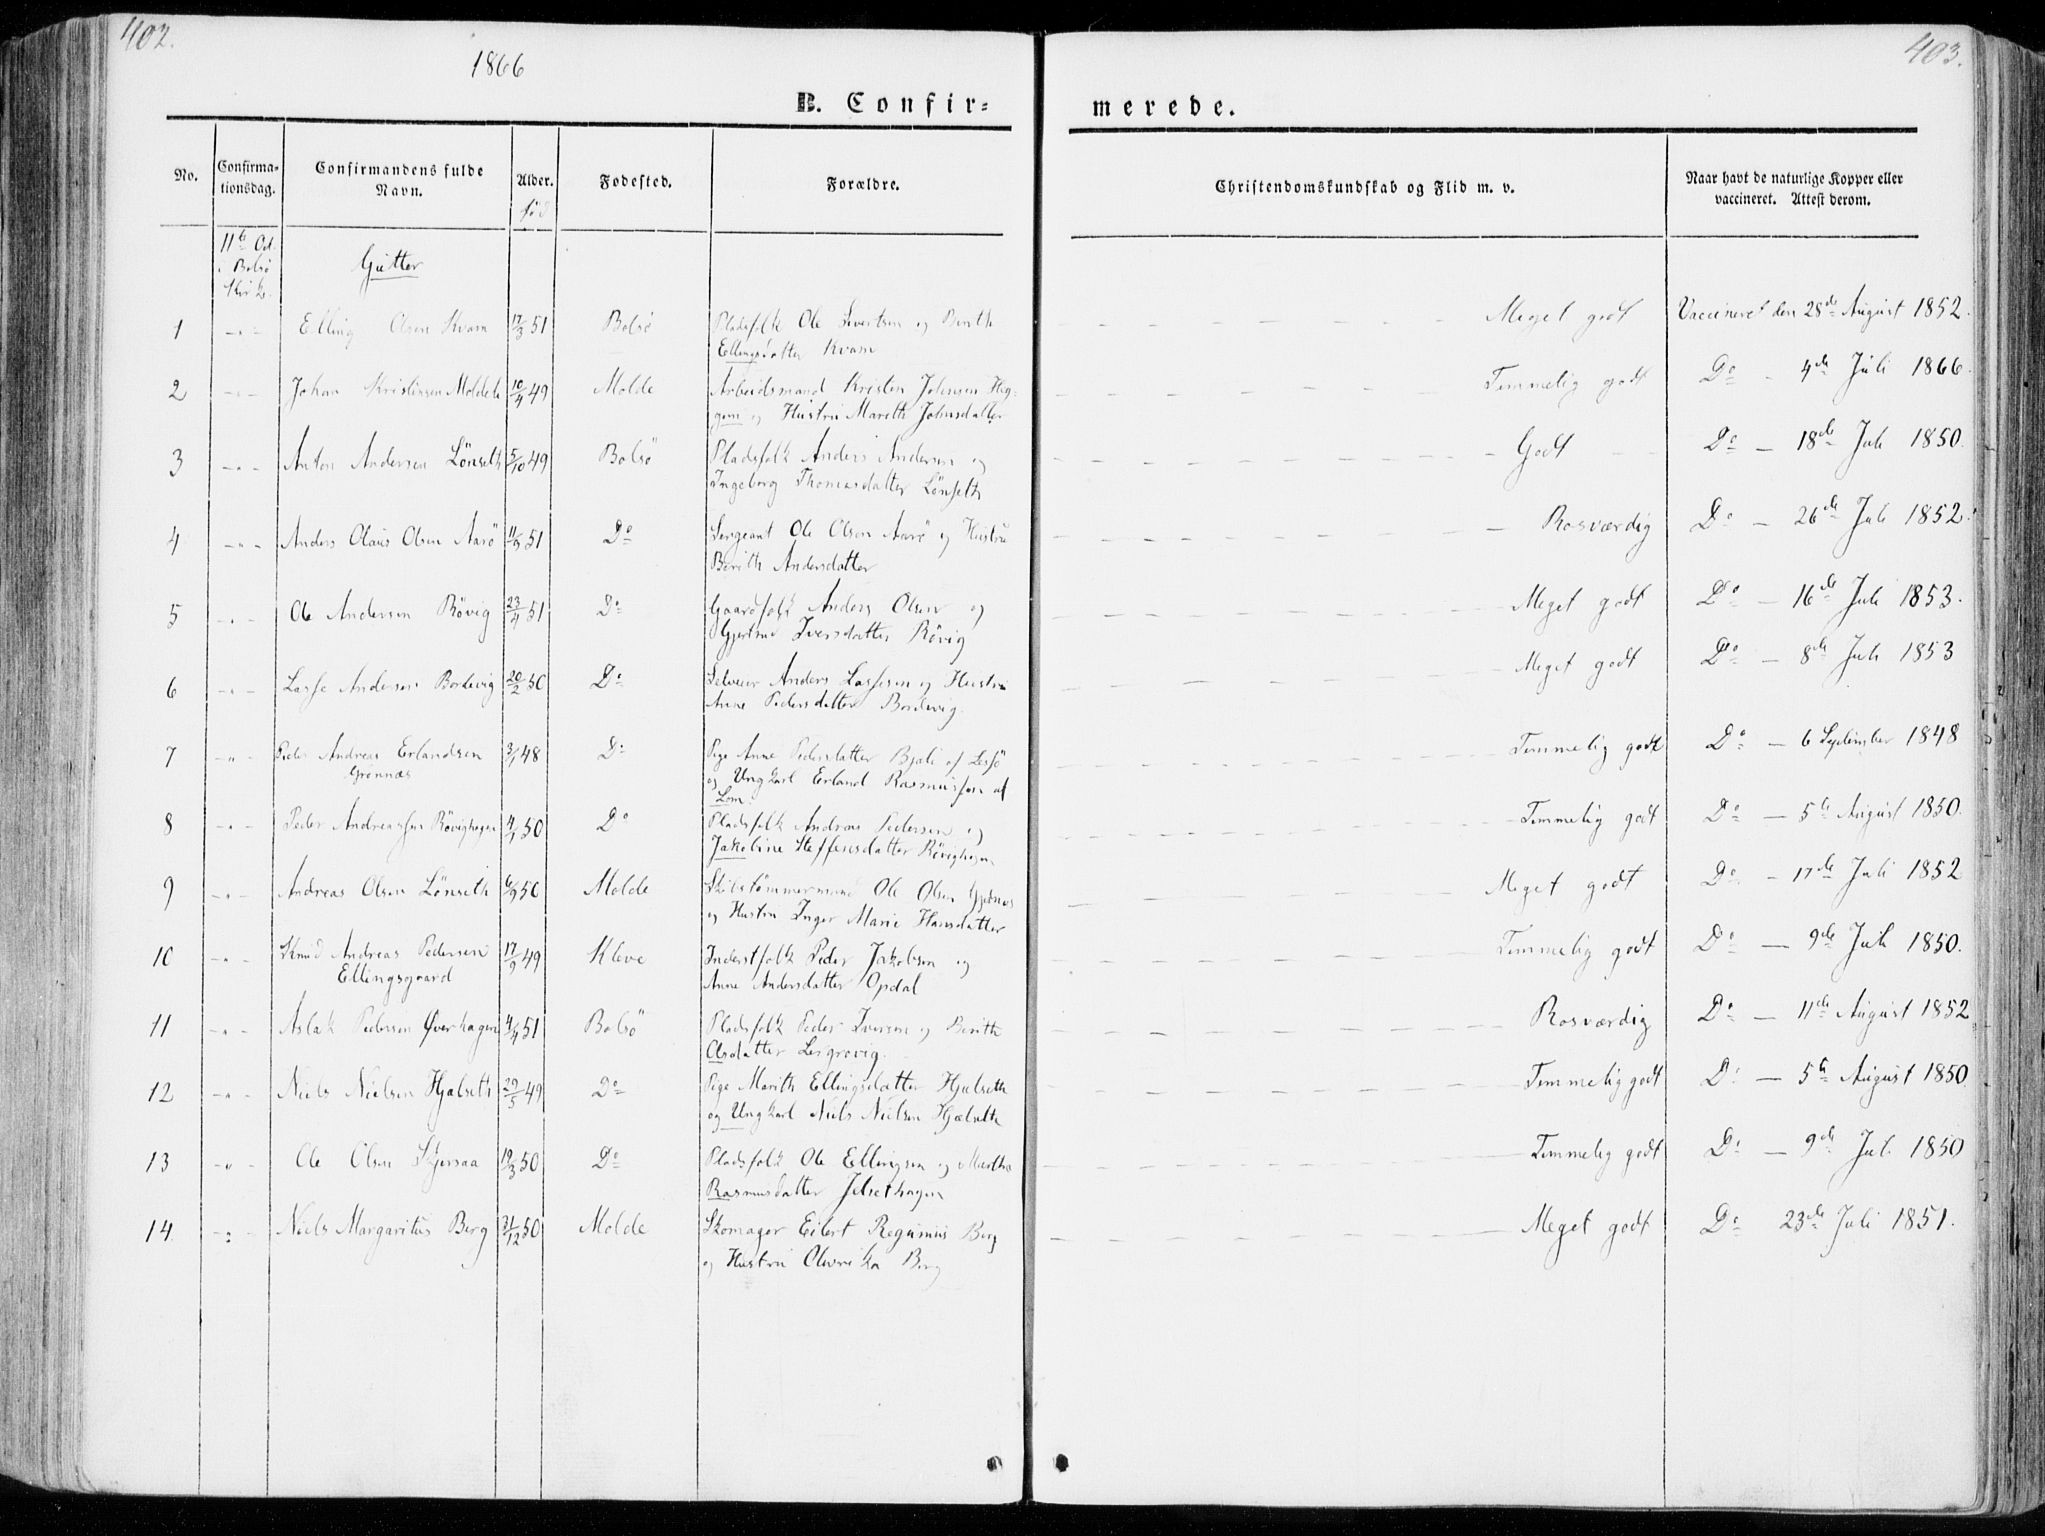 402.
1866
403.
B. Confir=
merede.
No.
Confirma-
tionsdag.
Confirmandens fulde
Navn.
Alder.
Fødested.
Forældre.
Christendomskundskab og Flid m. v.
Naar havt de naturlige Kopper eller
vaccineret. Attest derom.
fød
11te Oct.
i Bolsø
Kirke.
Gutter
1 -"- Elling Olsen Kvam 17/3 51 Bolsø Pladsfolk Ole Sivertsen og Berith
Ellingsdatter Kvam
Meget godt Vaccineret den 28de August 1852.
2 -"- Johan Kristensen Molde 10/4 49 Molde Arbeidsmand Kristen Johnsen Hig-
gem og Hustru Marith Johnsdatter
Temmelig godt Do - 4de Juli 1866.
3 -"- Anton Andersen Lönseth 5/10 49 Bolsö Pladsfolk Anders Andersen og
Ingeborg Thomasdatter Lönseth
Godt Do - 18de Juli 1850.
4 -"- Anders Olaus Olsen Aarö 11/5 51 Do Sergeant Ole Olsen Aarö og Hustru
Berith Andersdatter
Rosværdig Do - 26de Juli 1852.
5 -"- Ole Andersen Rövig 23/4 51 Do Gaardfolk Anders Olsen og
Gjertrud Iversdatter Rövig
Meget godt Do - 16de Juli 1853.
6 -"- Lasse Andersen Bordevig 20/2 50 Do Selveier Anders Lassesen og Hustru
Anne Pedersdatter Bordevig.
Meget godt Do - 8de Juli 1853
7 -"- Peder Andreas Erlandsen 3/1 48 Do Pige Anne Pedersdatter Bjali af Lesjö
Grönnæs og Ungkarl Erland Rasmussen af
Lom.
Temmelig godt Do - 6 September 1848
8 -"- Peder Andreassen Rövighagen 4/1 50 Do Pladsfolk Andreas Pedersen og
Jakobine Steffensdatter Rövighagen
Temmelig godt Do - 5te August 1850.
9 -"- Andreas Olsen Lönseth 6/9 50 Molde Skibstømmermand Ole Olsen
og Hustru Inger Marie Hansdatter
Meget godt Do - 17de Juli 1852
10 -"- Knud Andreas Pedersen 17/9 49 Kleve Inderstfolk Peder Jakobsen og
Ellingsgaard Anne Andersdatter Opdal
Temmelig godt Do - 9de Juli 1850.
11 -"- Aslak Pedersen Øverhagen 4/4 51 Bolsö Pladsfolk Peder Iversen og Berith
Olsdatter Lergrovig.
Rosværdig Do - 11de August 1852
12 -"- Niels Nielsen Hjelseth 29/5 49 Do Pige Marith Ellingsdatter Hjelseth
og Ungkarl Niels Nielsen Hjelseth
Temmelig godt Do - 5te August 1850
13 -"- Ole Olsen Skjersaa 19/3 50 Do Pladsfolk Ole Ellingsen og Martha
Rasmusdatter Jelsethagen
Temmelig godt Do - 9de Juli 1850
14. -"- Niels Margaritus Berg 31/12 50 Molde Skomager Eilert Reginius Berg
og Hustru Oluvrika Berg
Meget godt Do 23de Juli 1851.